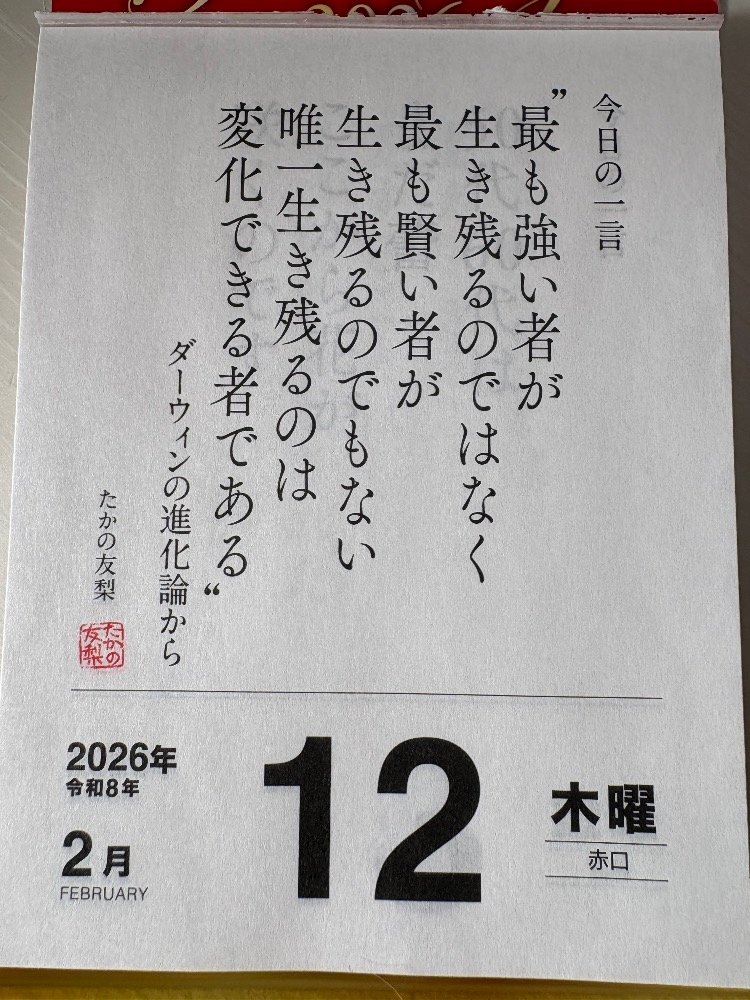 今日の一言
”最も強い者が
生き残るのではなく
最も賢い者が
生き残るのでもない
唯一生き残るのは
変化できる者である“
ダーウィンの進化論から
たかの友梨
たかの
友梨
2026年
令和8年
2月
FEBRUARY
12
木曜
赤口